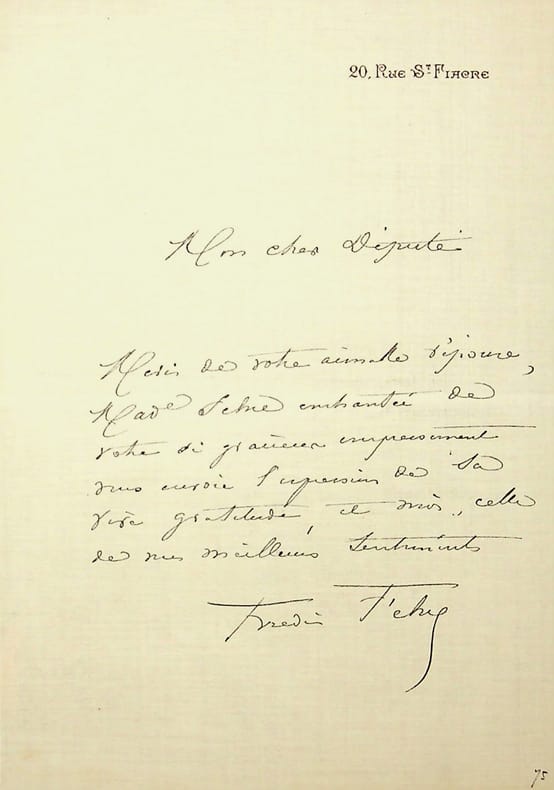 20, Rue St Fiacre
Mon cher Député
Merci de votre aimable réponse,
Made enchantée de
votre si gracieux empressement
vous envoie l'expression de sa
vive gratitude, et moi, celle
de mes meilleurs sentiments
75